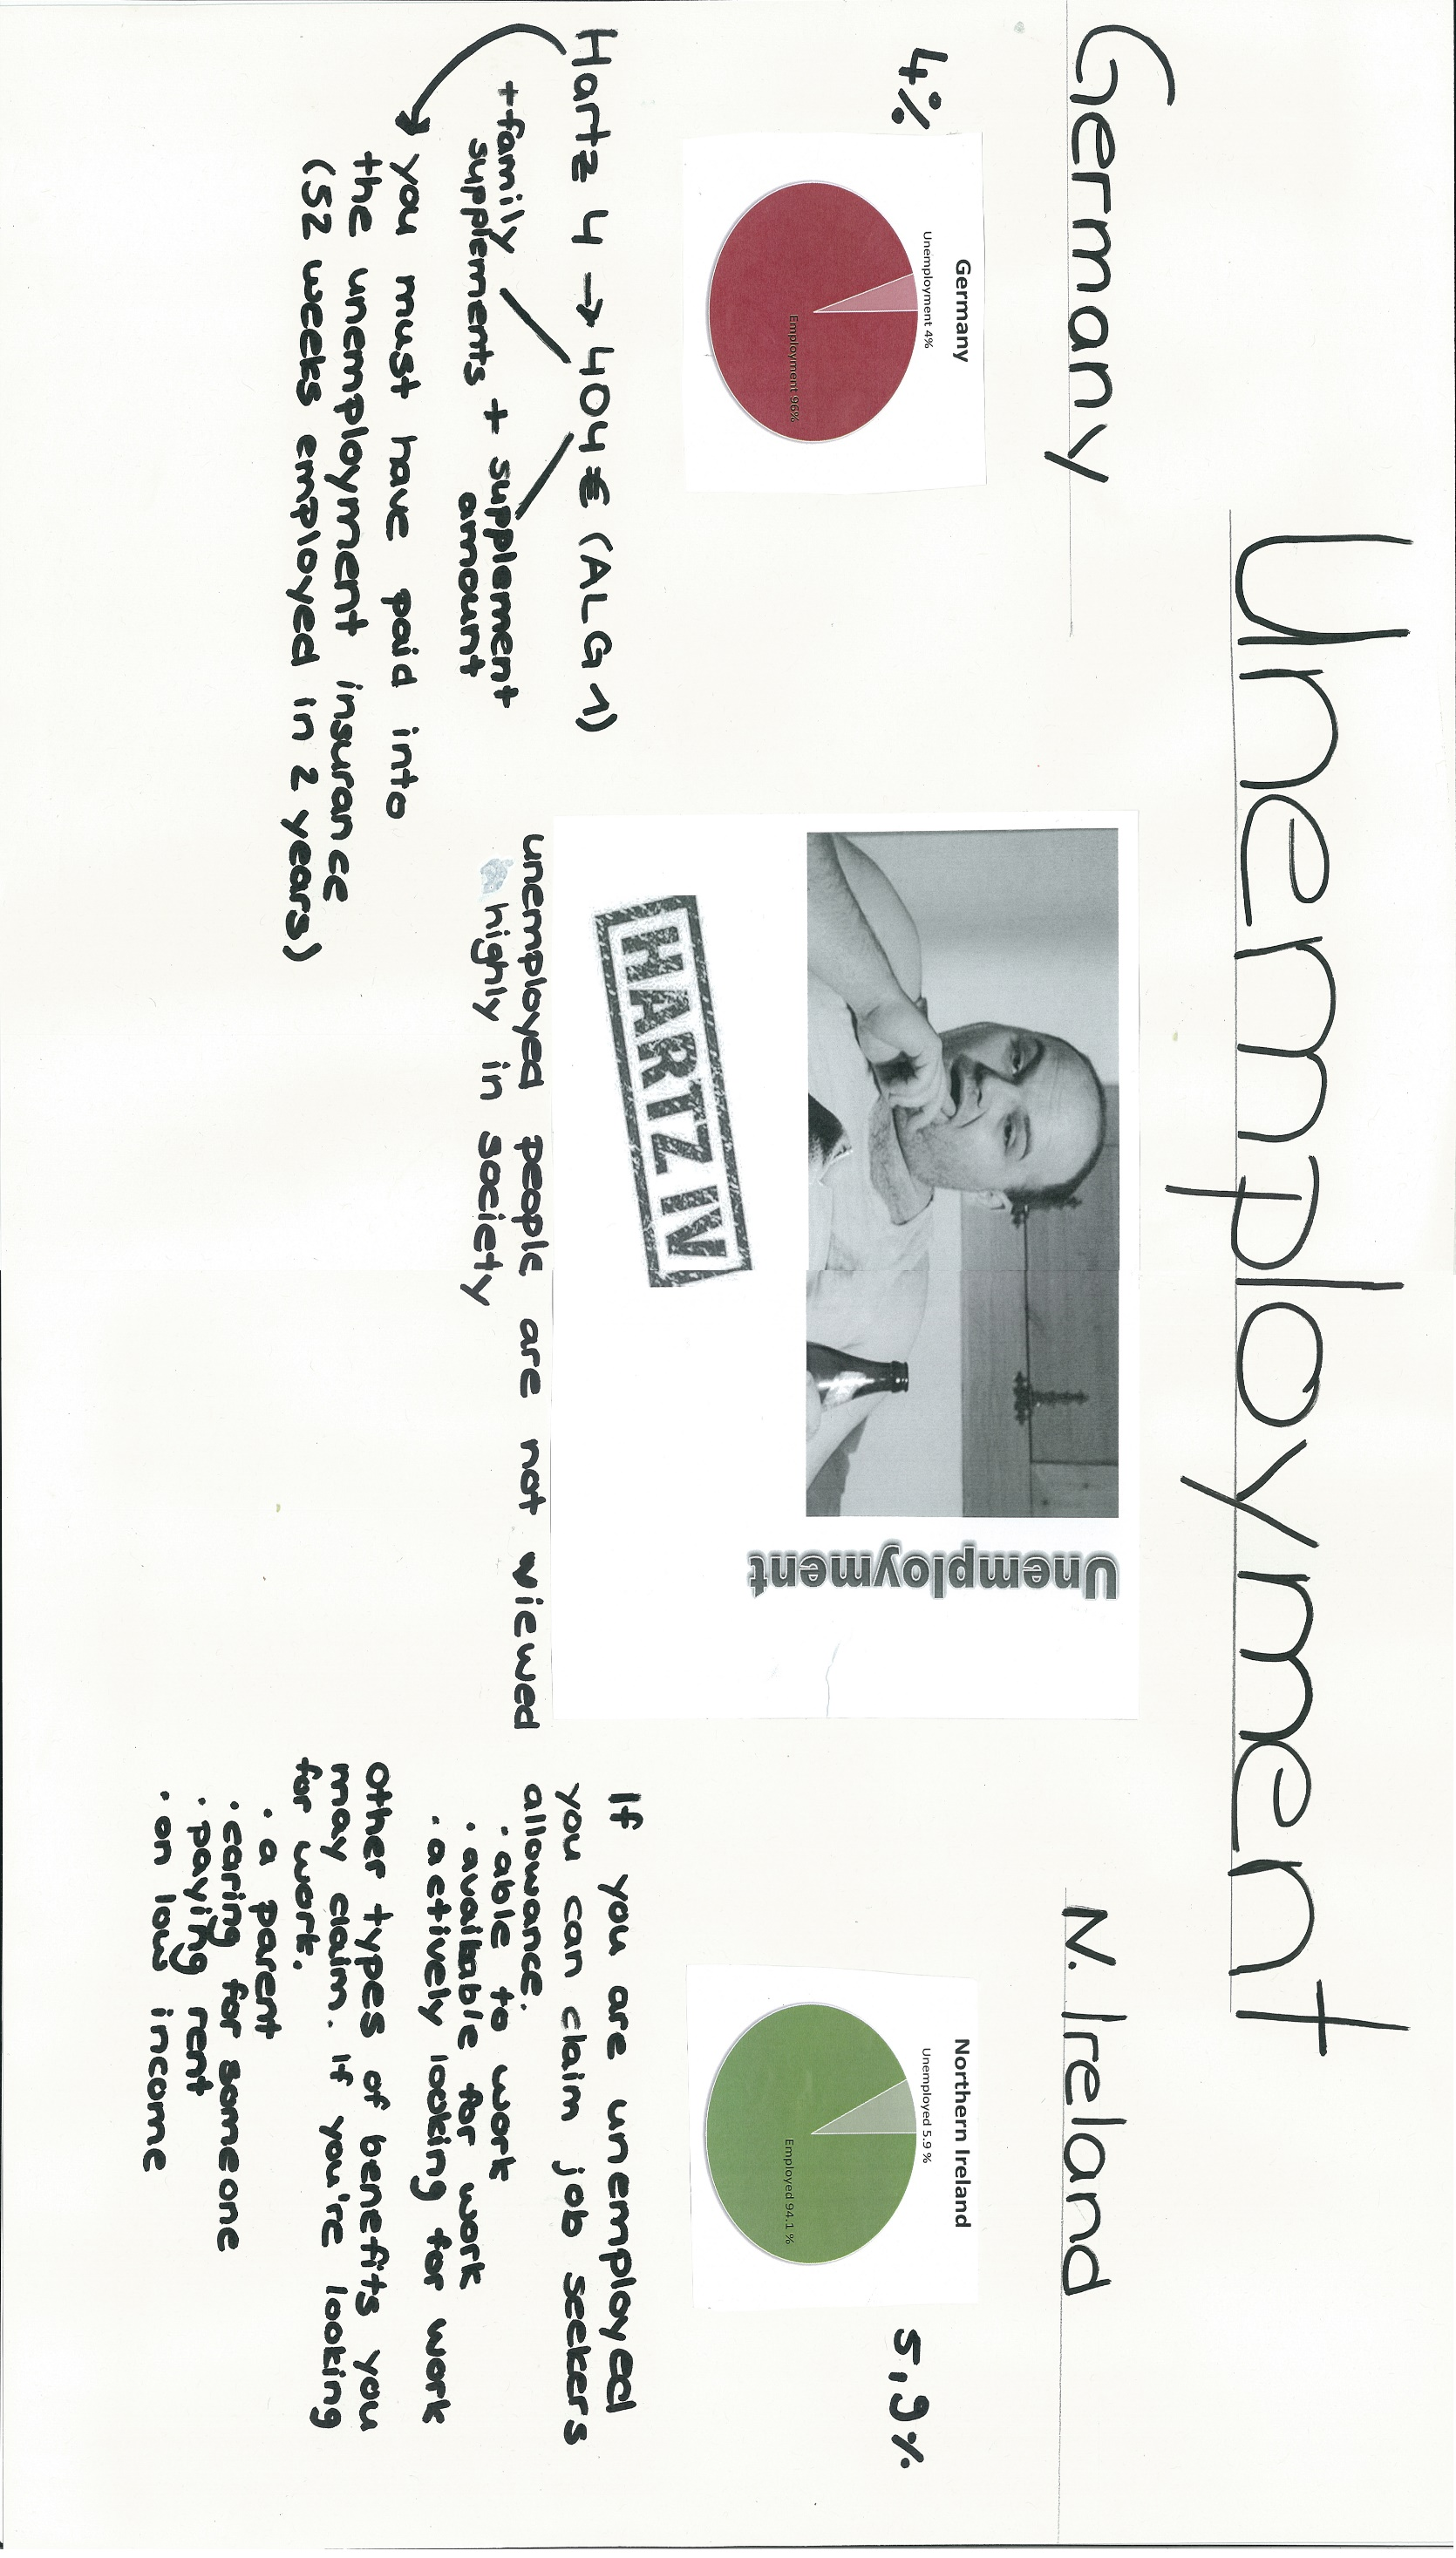 Unemployment
Germany
4%
Germany
Unemployment 4%
Employment 96%
Hartz 4 → 404€ (ALG 1)
+family supplements + supplement amount
you must have paid into
the unemployment insurance
(52 weeks employed in 2 years)
Unemployment
HARTZ IV
unemployed people are not viewed
highly in society
N. Ireland
Northern Ireland
Unemployed 5.9 %
Employed 94.1 %
5,9%
If you are unemployed
you can claim job seekers
allowance.
· able to work
· available for work
· actively looking for work
Other types of benefits you
may claim. If you're looking
for work.
· a parent
· caring for someone
· paying rent
· on low income